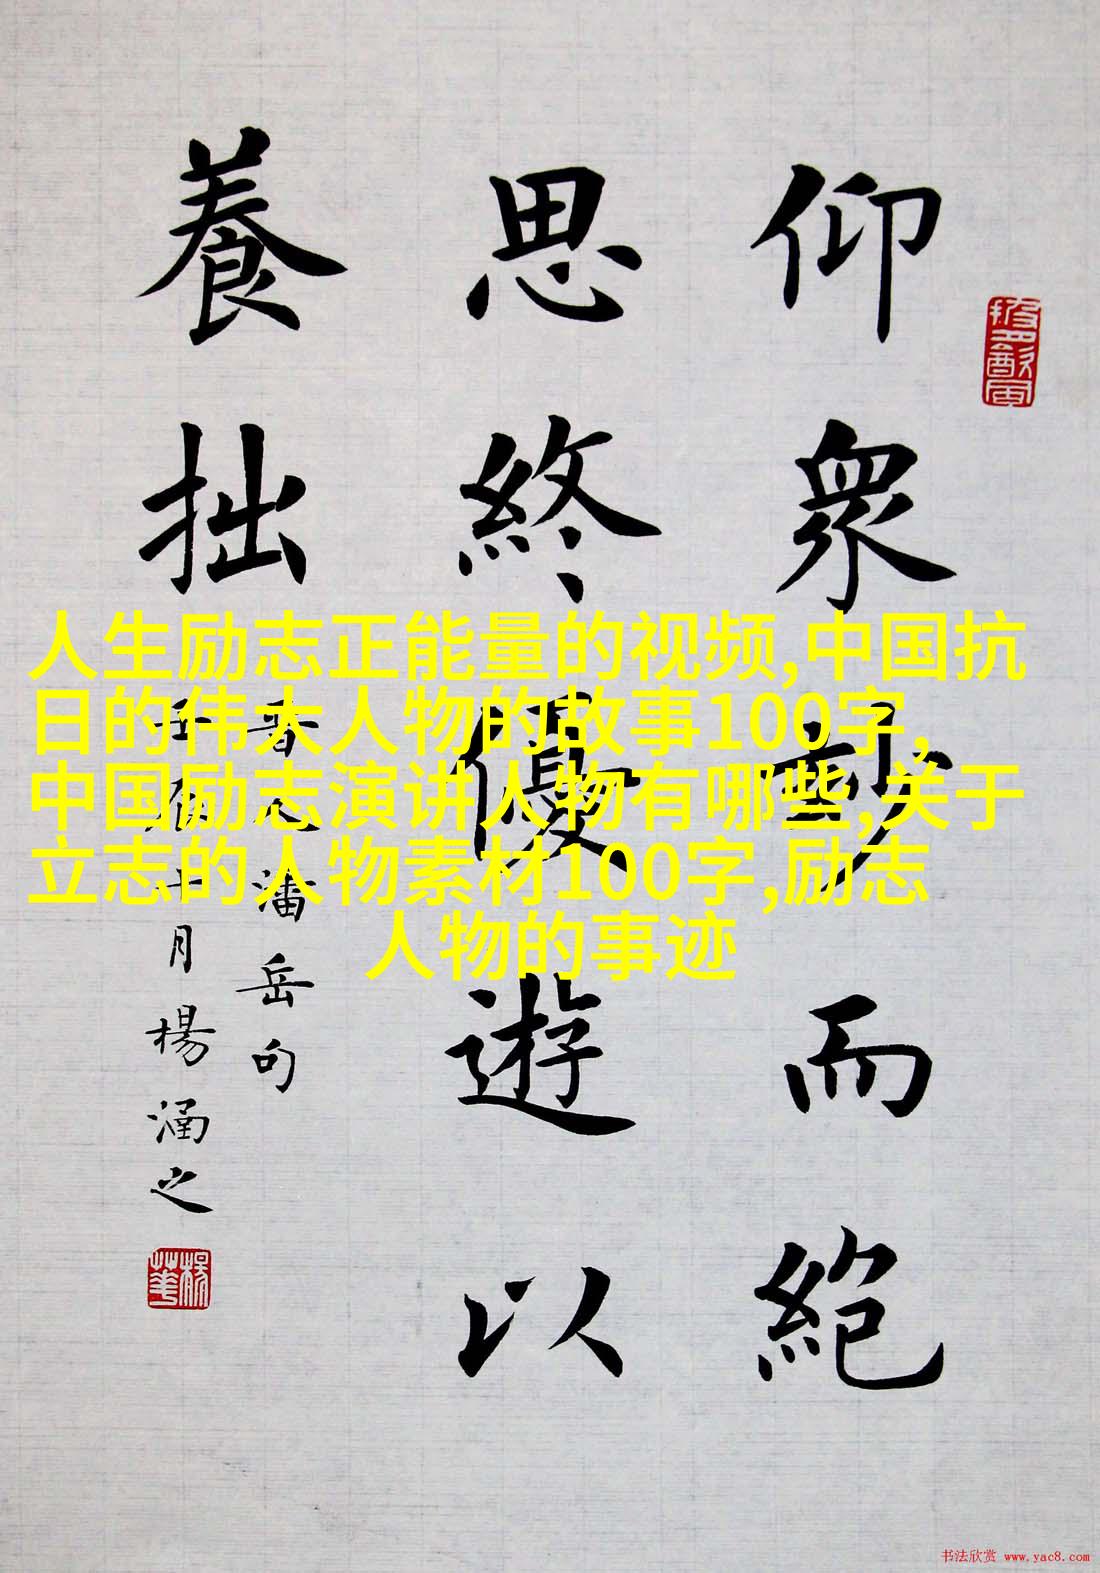 仰眾妙而絕
思終優遊以
養拙
晉人潘岳句
月楊涵之
人生励志正能量的视频,中国抗
日的伟大人物的故事100字,
中国励志演讲人物有哪些,关于
立志的人物素材100字,励志
人物的事迹
书法欣赏 www.yac8.com